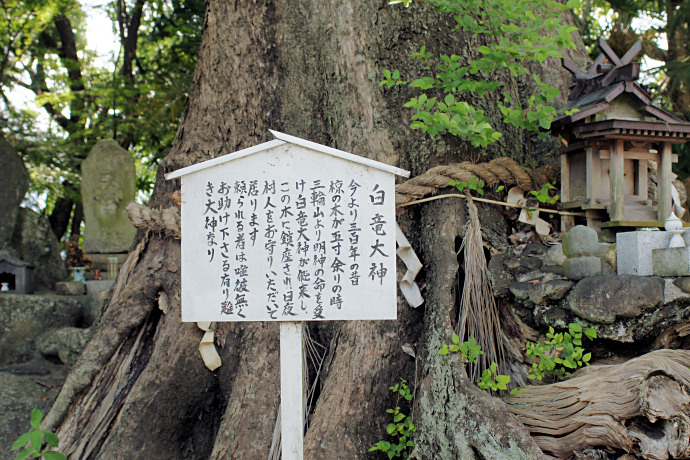 白竜大神
今より三百年の昔
椋の木が五寸余りの時
三輪山より明神の命を受
け白竜大神が能来し
この木に鎮座され日夜
村人をお守りいただいて
居ります
頼られる者は嘘彼無く
お助け下さる有り難
き大神なり